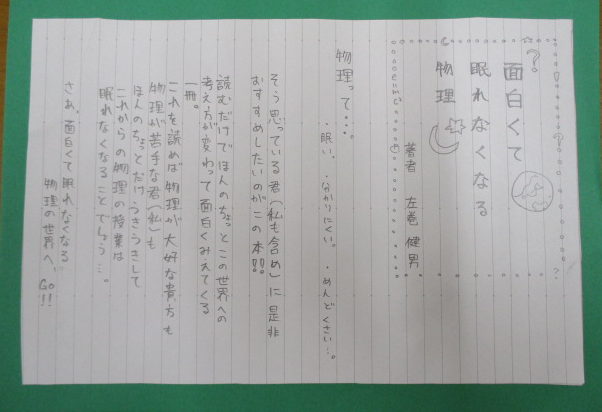 面白くて
眠れなくなる
物理
著者 左巻 健男
物理って…。
・眠い。 ・分かりにくい。 ・めんどくさい…。
そう思っている君(私も含め)に是非
おすすめしたいのがこの本!!
読むだけでほんのちょっとこの世界への
考え方が変わって面白くみえてくる
一冊。
これを読めば物理が大好きな貴方も
物理が苦手な君(私)も
ほんのちょっとだけうきうきして
これからの物理の授業は
眠れなくなることでしょう…。
さあ、面白くて眠れなくなる
物理の世界へ、Go!!